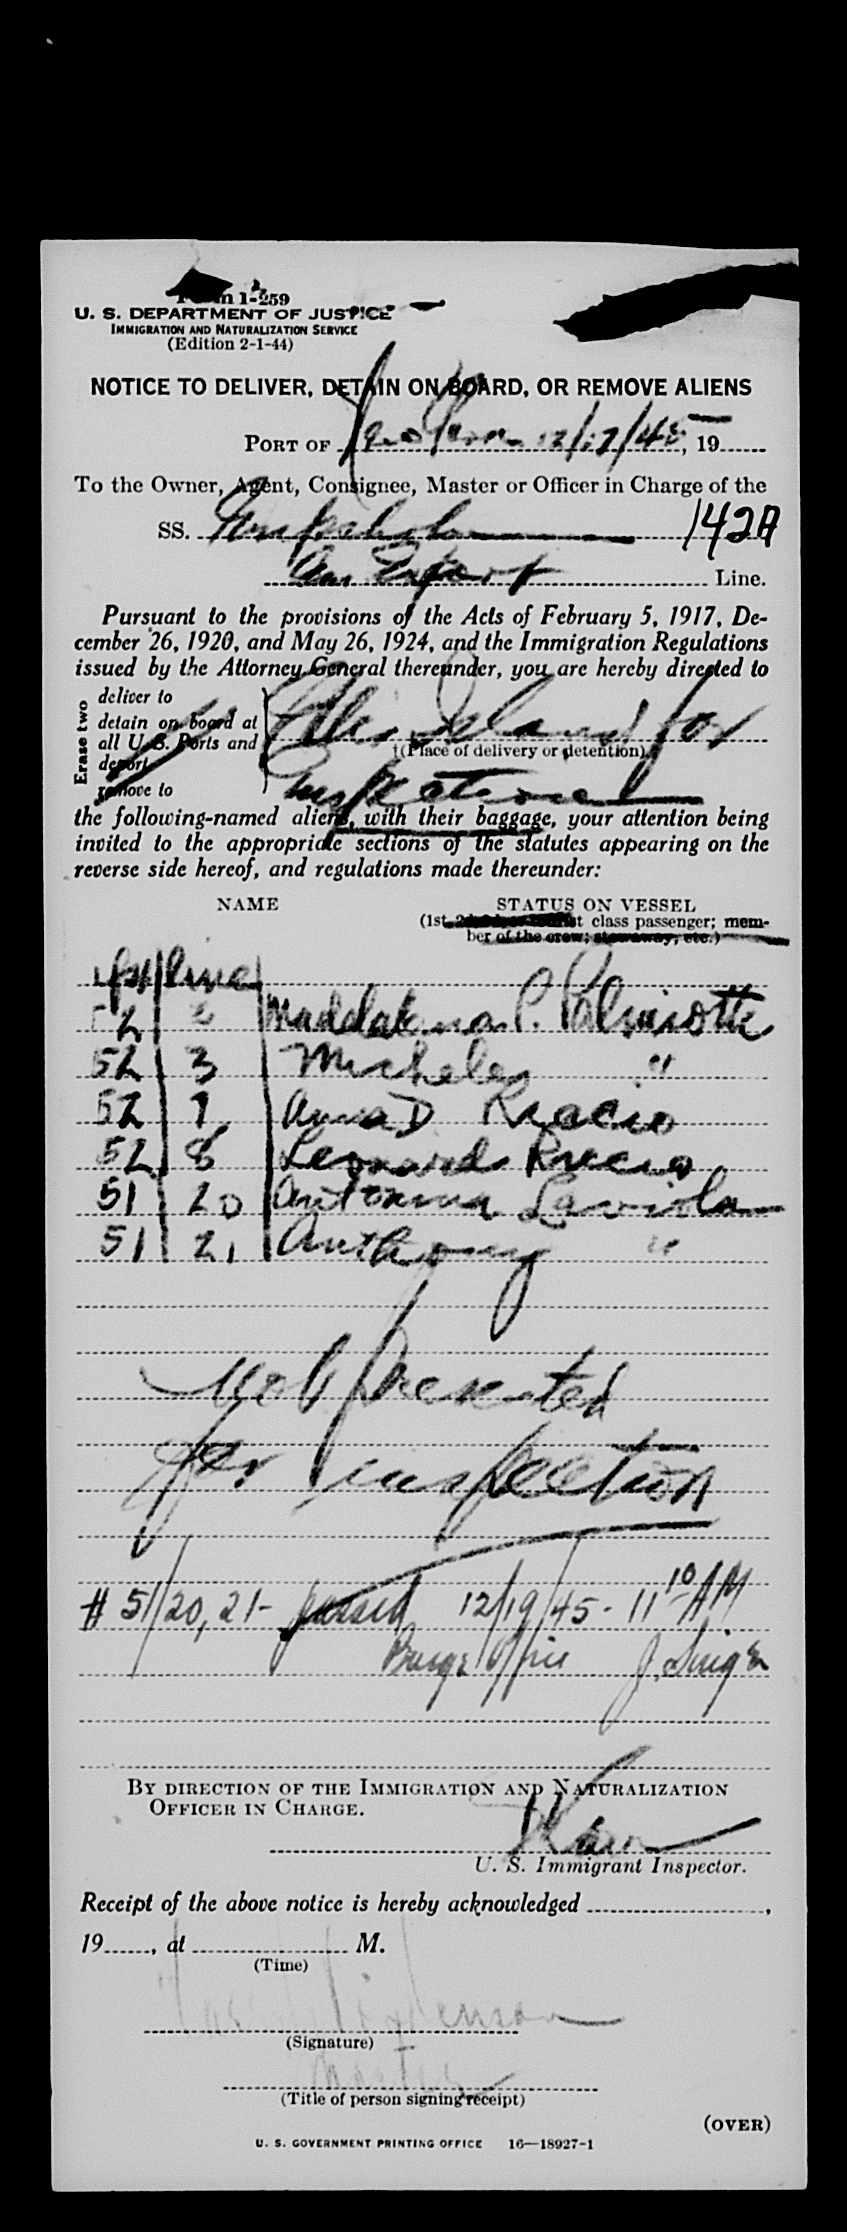 Form I-259
U. S. DEPARTMENT OF JUSTICE
IMMIGRATION AND NATURALIZATION SERVICE
(Edition 2-1-44)
NOTICE TO DELIVER, DETAIN ON BOARD, OR REMOVE ALIENS
PORT OF New York 12/17/45, 19
To the Owner, Agent, Consignee, Master or Officer in Charge of the
SS. 142A
Am Export Line.
Pursuant to the provisions of the Acts of February 5, 1917, De-
cember 26, 1920, and May 26, 1924, and the Immigration Regulations
issued by the Attorney General thereunder, you are hereby directed to
Erase two
deliver to
detain on board at
all U. S. Ports and
deport
remove to
Ellis Island for
(Place of delivery or detention)
Inspection
the following-named aliens, with their baggage, your attention being
invited to the appropriate sections of the statutes appearing on the
reverse side hereof, and regulations made thereunder:
NAME STATUS ON VESSEL
(1st class passenger; mem-
ber of the crew; stowaway, etc.)
Line
52 2 Maddalena P. Palmiotti
52 3 Michele "
52 7 Anna D
52 8 Leonard
51 20 Antonina Laviola
51 21 Anthony "
Not presented
for inspection
# 51/20, 21- passed 12/19/45- 11 10 AM
Barge Office J.
BY DIRECTION OF THE IMMIGRATION AND NATURALIZATION
OFFICER IN CHARGE.
U. S. Immigrant Inspector.
Receipt of the above notice is hereby acknowledged ,
19 , at M.
(Time)
(Signature)
Master
(Title of person signing receipt)
(OVER)
U. S. GOVERNMENT PRINTING OFFICE 16—18927-1